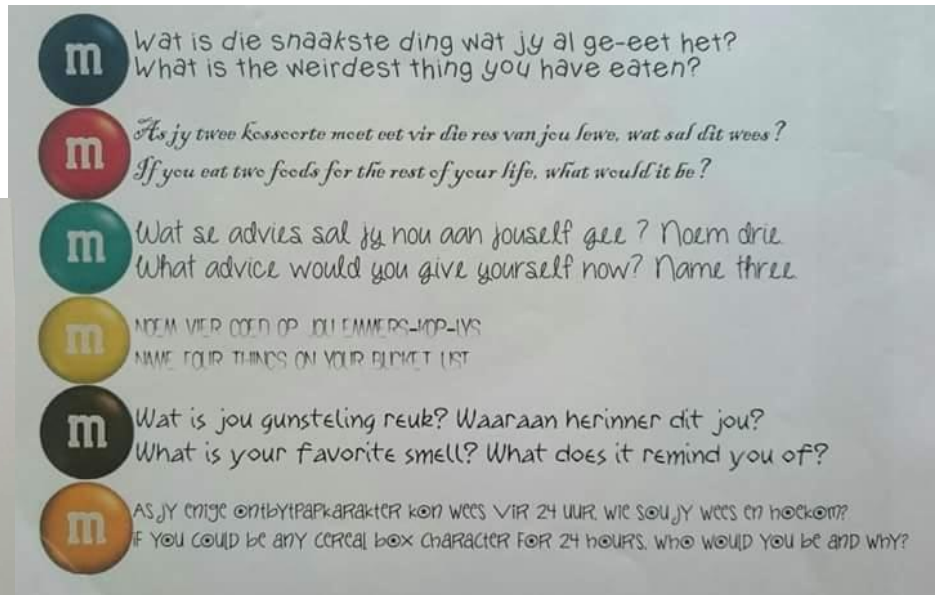 m
Wat is die snaakste ding wat jy al ge-eet het?
What is the weirdest thing you have eaten?
m
As jy twee kossoorte moet eet vir die res van jou lewe, wat sal dit wees?
If you eat two foods for the rest of your life, what would it be?
m
Wat se advies sal jy nou aan jouself gee? Noem drie
What advice would you give yourself now? Name three
m
NOEM VIER GOED OP JOU EMMERS-KOP-LYS
NAME FOUR THINGS ON YOUR BUCKET LIST
m
Wat is jou gunsteling reuk? Waaraan herinner dit jou?
What is your favorite smell? What does it remind you of?
m
AS JY enige ontbytpapkarakter kon wees VIR 24 UUR, wie SOU JY wees en hoekom?
iF YOU COULD be any cereal box character FOR 24 hours, who would you be and why?